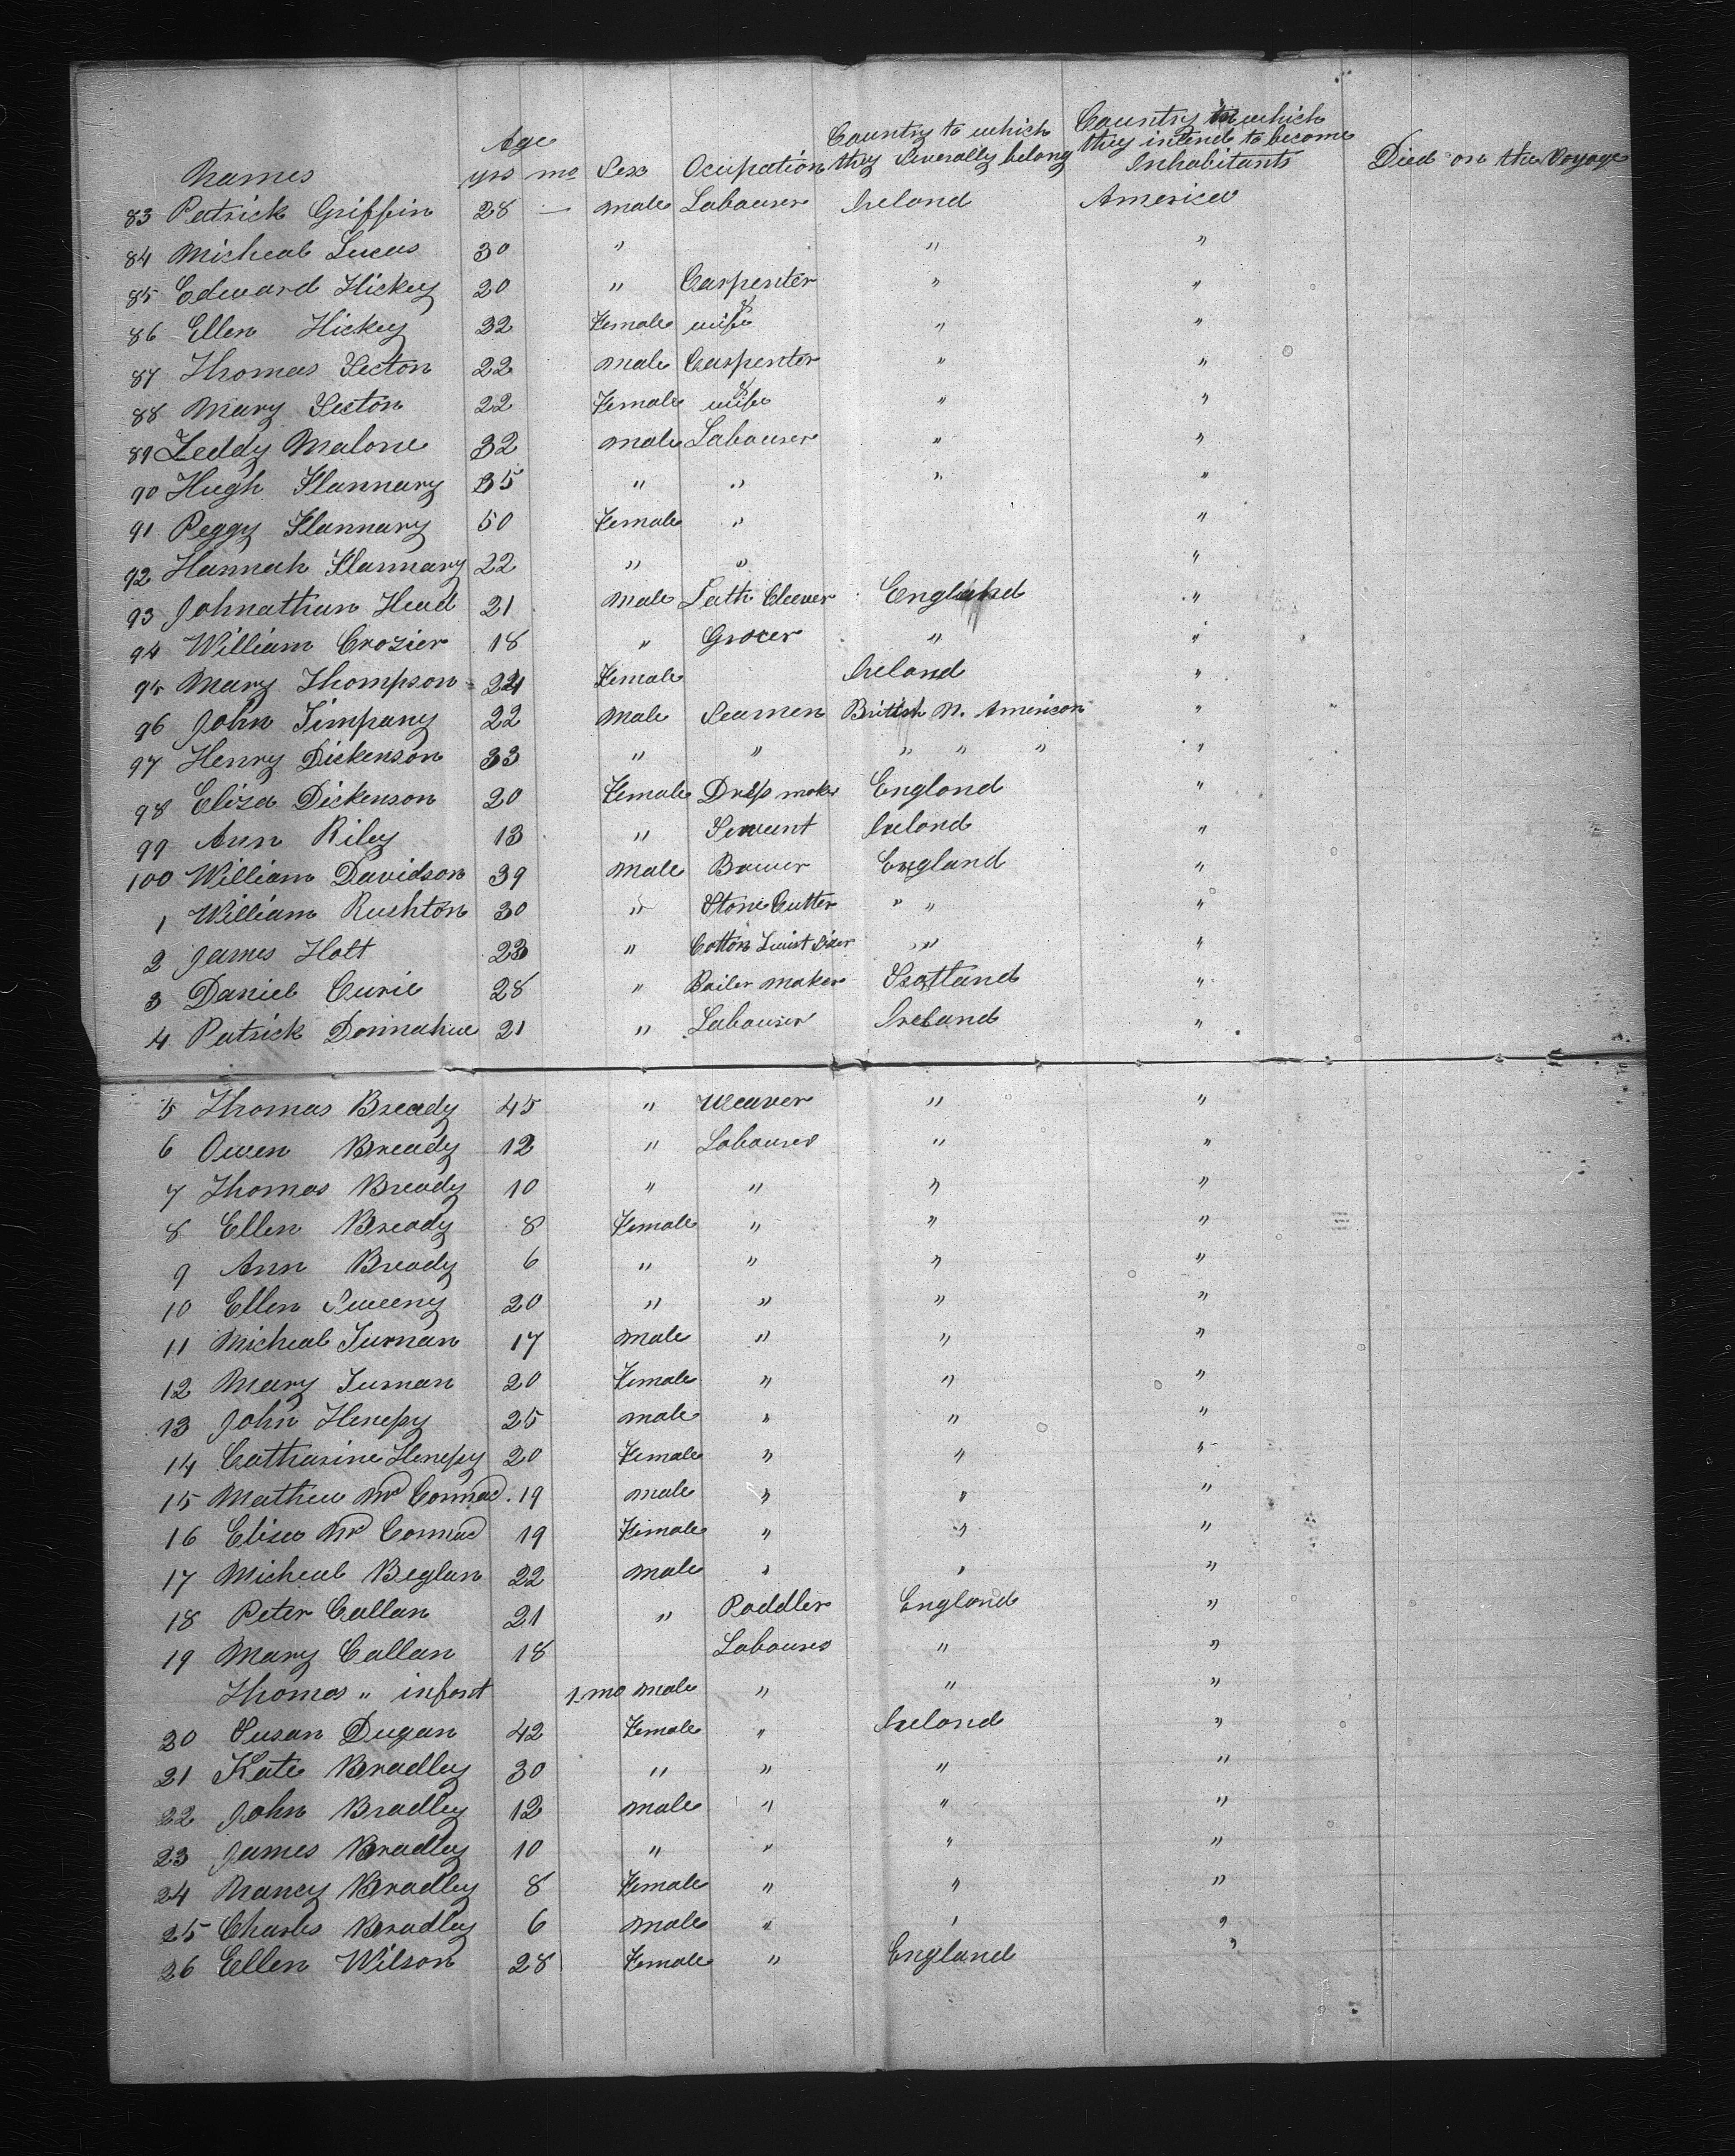 Names Age yrs mo Sex Ocupation Country to which they Severally belong Country in which they intend to become Inhabitants Died on the Voyage
83 Patrick Griffin 28 — male Labourer Ireland America
84 Micheal Lucas 30 " " "
85 Edward Hickey 20 " Carpenter " "
86 Ellen Hickey 32 Female & wife " "
87 Thomas Secton 22 male Carpenter " "
88 Mary Secton 22 Female & wife " "
89 Teddy Malone 32 male Labourer " "
90 Hugh Flannary 35 " " " "
91 Peggy Flannary 50 Female " "
92 Hannah Flannary 22 " " "
93 Johnathan Head 21 male Lath Cleaver England "
94 William Crozier 18 " Grocer " "
95 Mary Thompson 24 Female Ireland "
96 John Timpany 22 male Seamen British N. American "
97 Henry Dickenson 33 " " " " " "
98 Eliza Dickenson 20 Female Dress maker England "
99 Ann Riley 13 " Servant Ireland "
100 William Davidson 39 male Brewer England "
1 William Rushton 30 " Stone Cutter " " "
2 James Holt 23 " Cotton Twist Sizer " "
3 Daniel Curie 28 " Boiler maker Scotland "
4 Patrick Donnahue 21 " Labourer Ireland "
5 Thomas Bready 45 " Weaver " "
6 Owen Bready 12 " Labourer " "
7 Thomas Bready 10 " " " "
8 Ellen Bready 8 Female " " "
9 Ann Bready 6 " " " "
10 Ellen Sweeny 20 " " " "
11 Micheal Turnan 17 male " " "
12 Mary Turnan 20 Female " " "
13 John Henesy 25 male " " "
14 Catharine Henesy 20 Female " " "
15 Mathew Mc Cormac 19 male " " "
16 Eliza Mc Cormac 19 Female " " "
17 Micheal Beglan 22 male " " "
18 Peter Callan 21 " Peddler England "
19 Mary Callan 18 Labourer " "
Thomas " infant 1 mo male " " "
20 Susan Dugan 42 Female " Ireland "
21 Kate Bradley 30 " " " "
22 John Bradley 12 male " " "
23 James Bradley 10 " " " "
24 Nancy Bradley 8 Female " " "
25 Charles Bradley 6 male " " "
26 Ellen Wilson 28 Female " England "